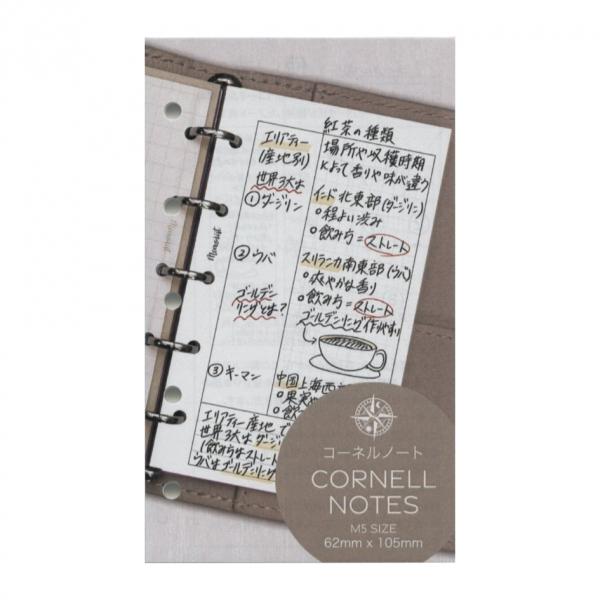 紅茶の種類
エリアティー
(産地別)
世界3大は
①ダージリン
②ウバ
ゴールデン
リングとは?
③キーマン
場所や収穫時期
によって香りや味が違う
インド北東部(ダージリン)
○程よい渋み
○飲み方=ストレート
スリランカ南東部(ウバ)
○爽やかな香り
○飲み方=ストレート
ゴールデンリング作りやすい
中国上海西
○果実や
○飲
エリアティー産地で
世界3大はダージ
(飲み方はストレート
ウバはゴールデンリング
コーネルノート
CORNELL
NOTES
M5 SIZE
62mm x 105mm